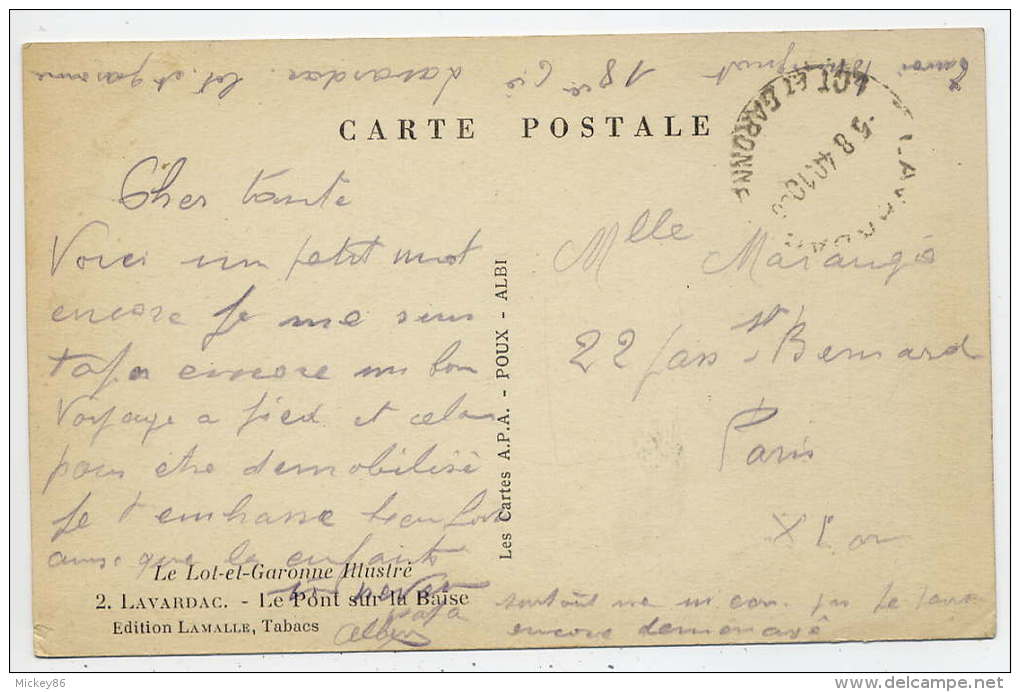 18e Cie Lavardac. Lot et garonne
CARTE POSTALE
LOT ET GARONNE
-5 8 40
Cher tante
Voici un petit mot
encore je me suis
tapé encore un bon
voyage a pied et cela
pour etre demobilisé
je t'embrasse bien fort
ainsi que les enfants
ton neveu
papa
Albert
Le Lot-et-Garonne Illustré
2. LAVARDAC. - Le Pont sur la Baise
Edition LAMALLE, Tabacs
Les Cartes A.P.A. - POUX - ALBI
Mlle Marangé
22 pass St Bernard
Paris
surtout ne
encore demenagé
Mickey86
delcampe.net